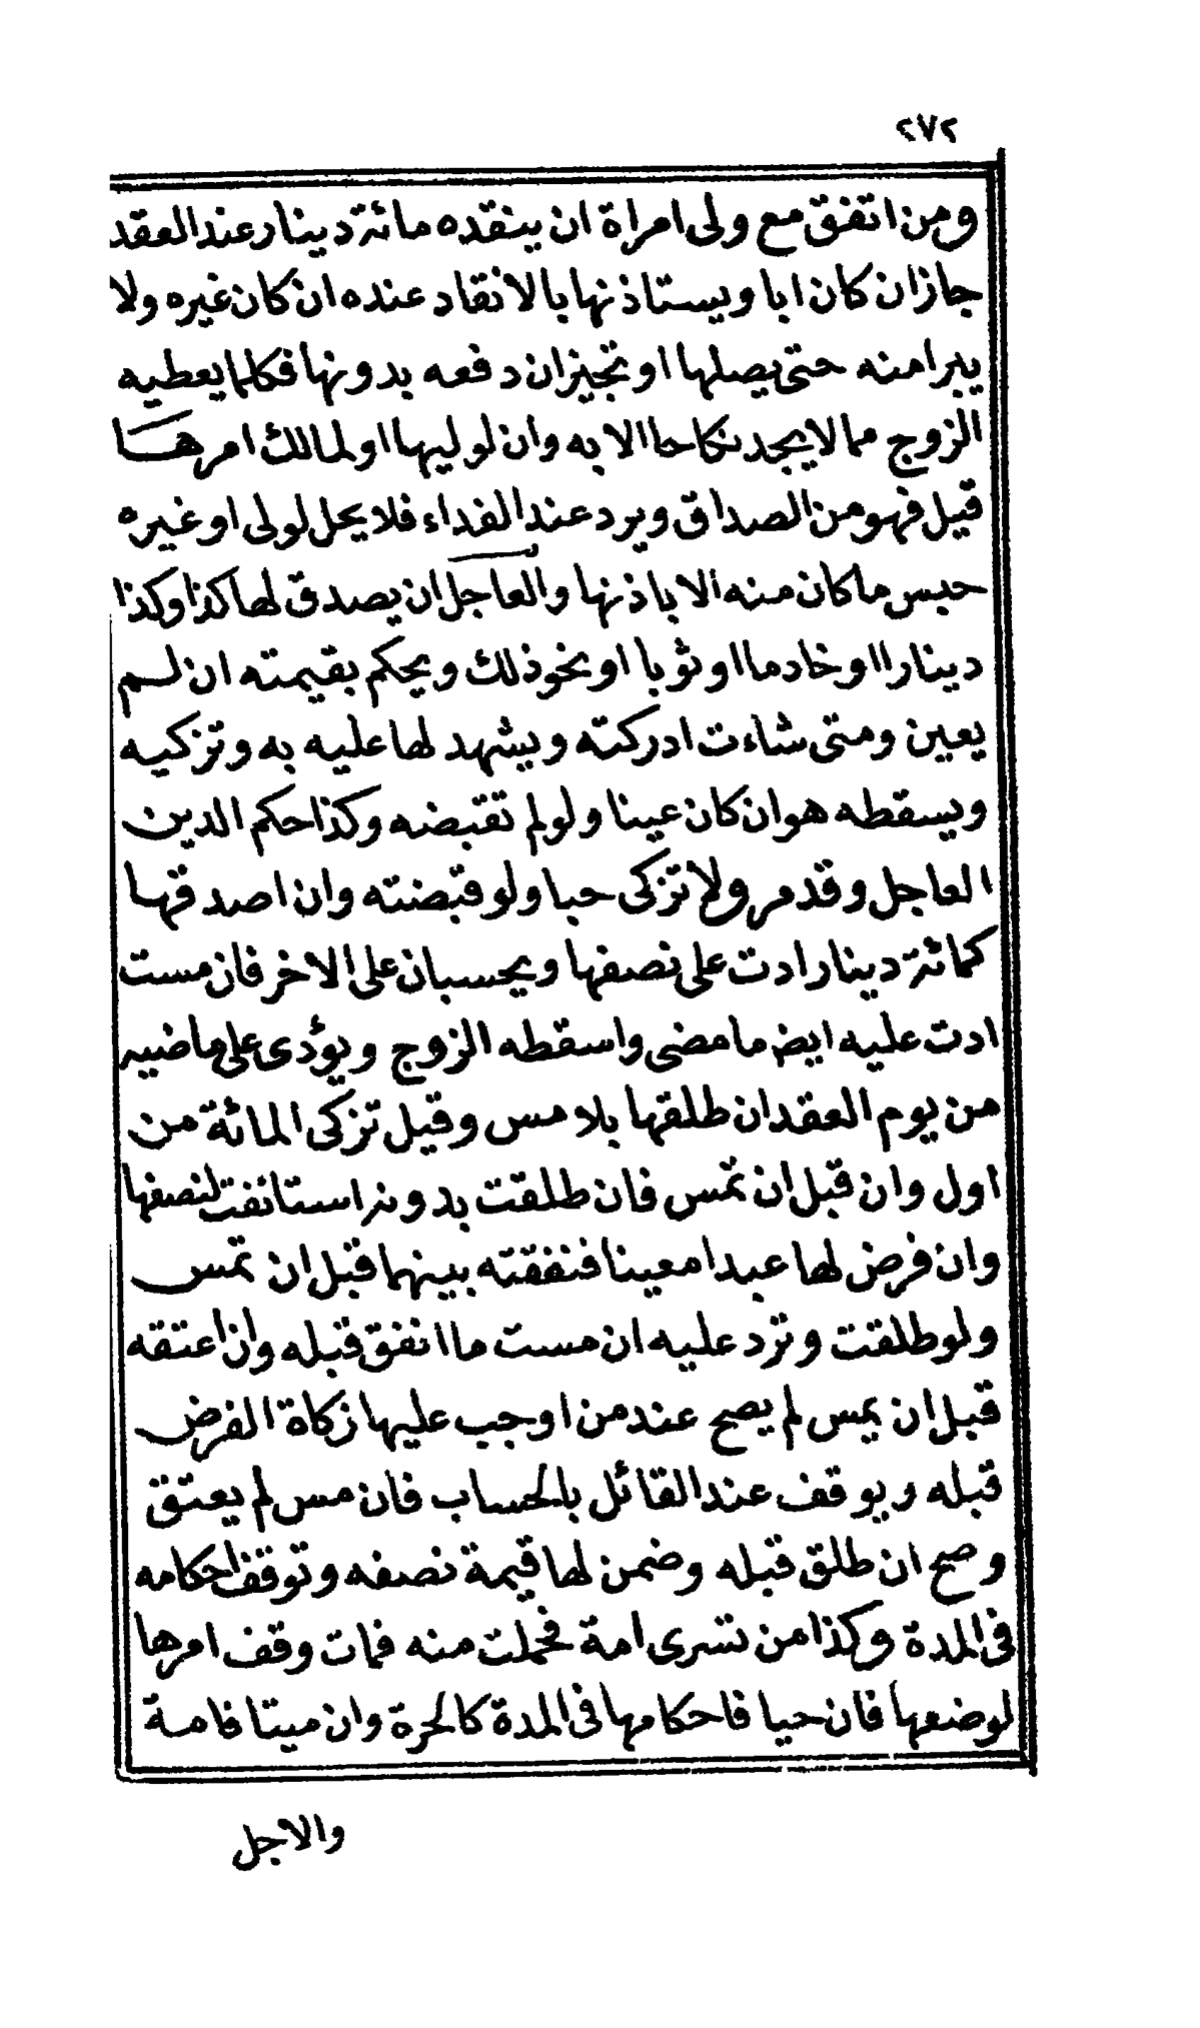 ٢٧٢
ومن اتفق مع ولى امراة ان ينقده مائة دينار عند العقد
جاز ان كان ابا ويستاذنها بالانقاد عنده ان كان غيره ولا
يبرا منه حتى يصلها او تجيز ان دفعه بدونها فكلما يعطيه
الزوج مما لا يجد نكاحا الا به وان لوليها او لمالك امرها
قيل فهو من الصداق ويرد عند الفداء فلا يحل لولى او غيره
حبس ما كان منه الا باذنها والعاجل ان يصدق لها كذا وكذا
دينارا او خادما او ثوبا او نحو ذلك ويحكم بقيمته ان لم
يعين ومتى شاءت ادركته ويشهد لها عليه به وتزكيه
ويسقطه هو ان كان عينا ولو لم تقبضه وكذا حكم الدين
العاجل وقد مر ولا تزكى حبا ولو قبضته وان اصدقها
كمائة دينار ادت على نصفها ويحسبان على الاخر فان مست
ادت عليه ايضا ما مضى واسقطه الزوج ويؤدى على ماضيه
من يوم العقد ان طلقها بلا مس وقيل تزكى المائة من
اول وان قبل ان تمس فان طلقت بدونه استانفت لنصفها
وان فرض لها عبدا معينا فنفقته بينهما قبل ان تمس
ولو طلقت وترد عليه ان مست ما انفق قبله وان اعتقه
قبل ان يمس لم يصح عند من اوجب عليها زكاة الفرض
قبله ويوقف عند القائل بالحساب فان مس لم يعتق
وصح ان طلق قبله وضمن لها قيمة نصفه وتوقف احكامه
فى المدة وكذا من تسرى امة فحملت منه فمات وقف امرها
لوضعها فان حيا فاحكامها فى المدة كالحرة وان ميتا فامة
والاجل